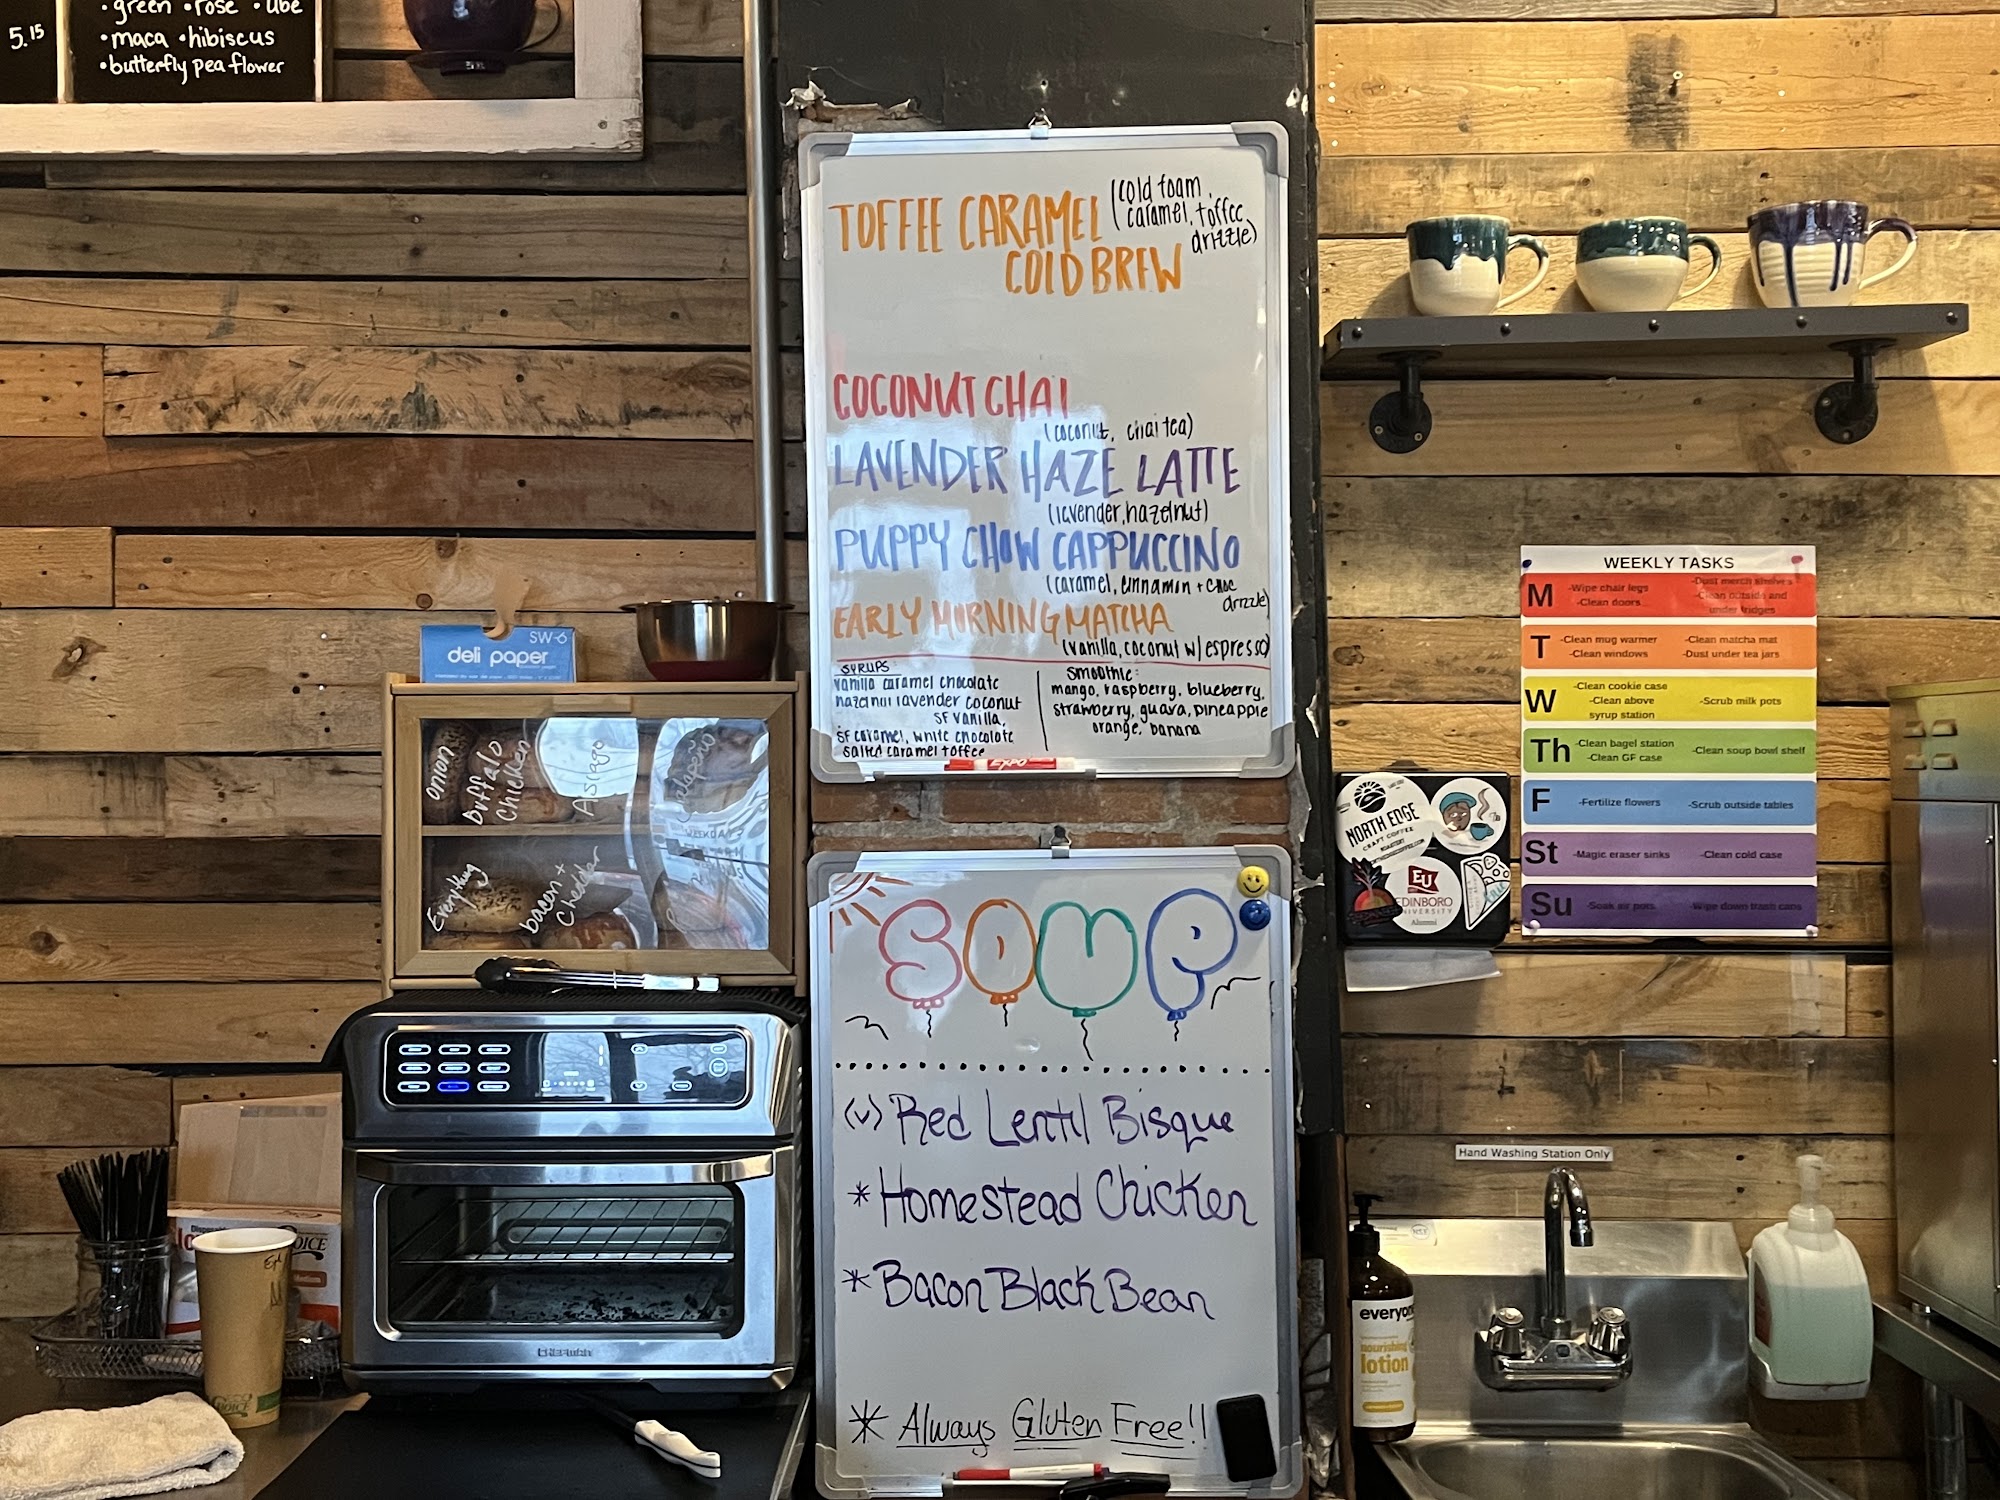 • green • rose • ube
5.15
• maca • hibiscus
• butterfly pea flower
TOFFEE CARAMEL
(cold foam,
caramel, toffee
drizzle)
COLD BREW
COCONUT CHAI
(coconut, chai tea)
LAVENDER HAZE LATTE
(lavender, hazelnut)
PUPPY CHOW CAPPUCCINO
(caramel, cinnamon + choc
drizzle)
EARLY MORNING MATCHA
(vanilla, coconut w/ espresso)
SYRUPS:
vanilla caramel chocolate
hazelnut lavender coconut
SF vanilla,
SF caramel, white chocolate
salted caramel toffee
Smoothie:
mango, raspberry, blueberry,
strawberry, guava, pineapple
orange, banana
EXPO
SOUP
(v) Red Lentil Bisque
* Homestead Chicken
* Bacon Black Bean
* Always Gluten Free!!
SW-6
deli paper
onion
buffalo
Chicken
Asiago
Jalapeño
Everything
bacon +
Cheddar
CHEFMAN
WEEKLY TASKS
M
-Wipe chair legs
-Clean doors
-Dust merch shelves
-Clean outside and
under fridges
T
-Clean mug warmer
-Clean windows
-Clean matcha mat
-Dust under tea jars
W
-Clean cookie case
-Clean above
syrup station
-Scrub milk pots
Th
-Clean bagel station
-Clean GF case
-Clean soup bowl shelf
F
-Fertilize flowers
-Scrub outside tables
St
-Magic eraser sinks
-Clean cold case
Su
-Soak air pots
-Wipe down trash cans
NORTH EDGE
CRAFT COFFEE
ROASTERY
EU
EDINBORO
UNIVERSITY
Alumni
Hand Washing Station Only
everyone
nourishing
lotion